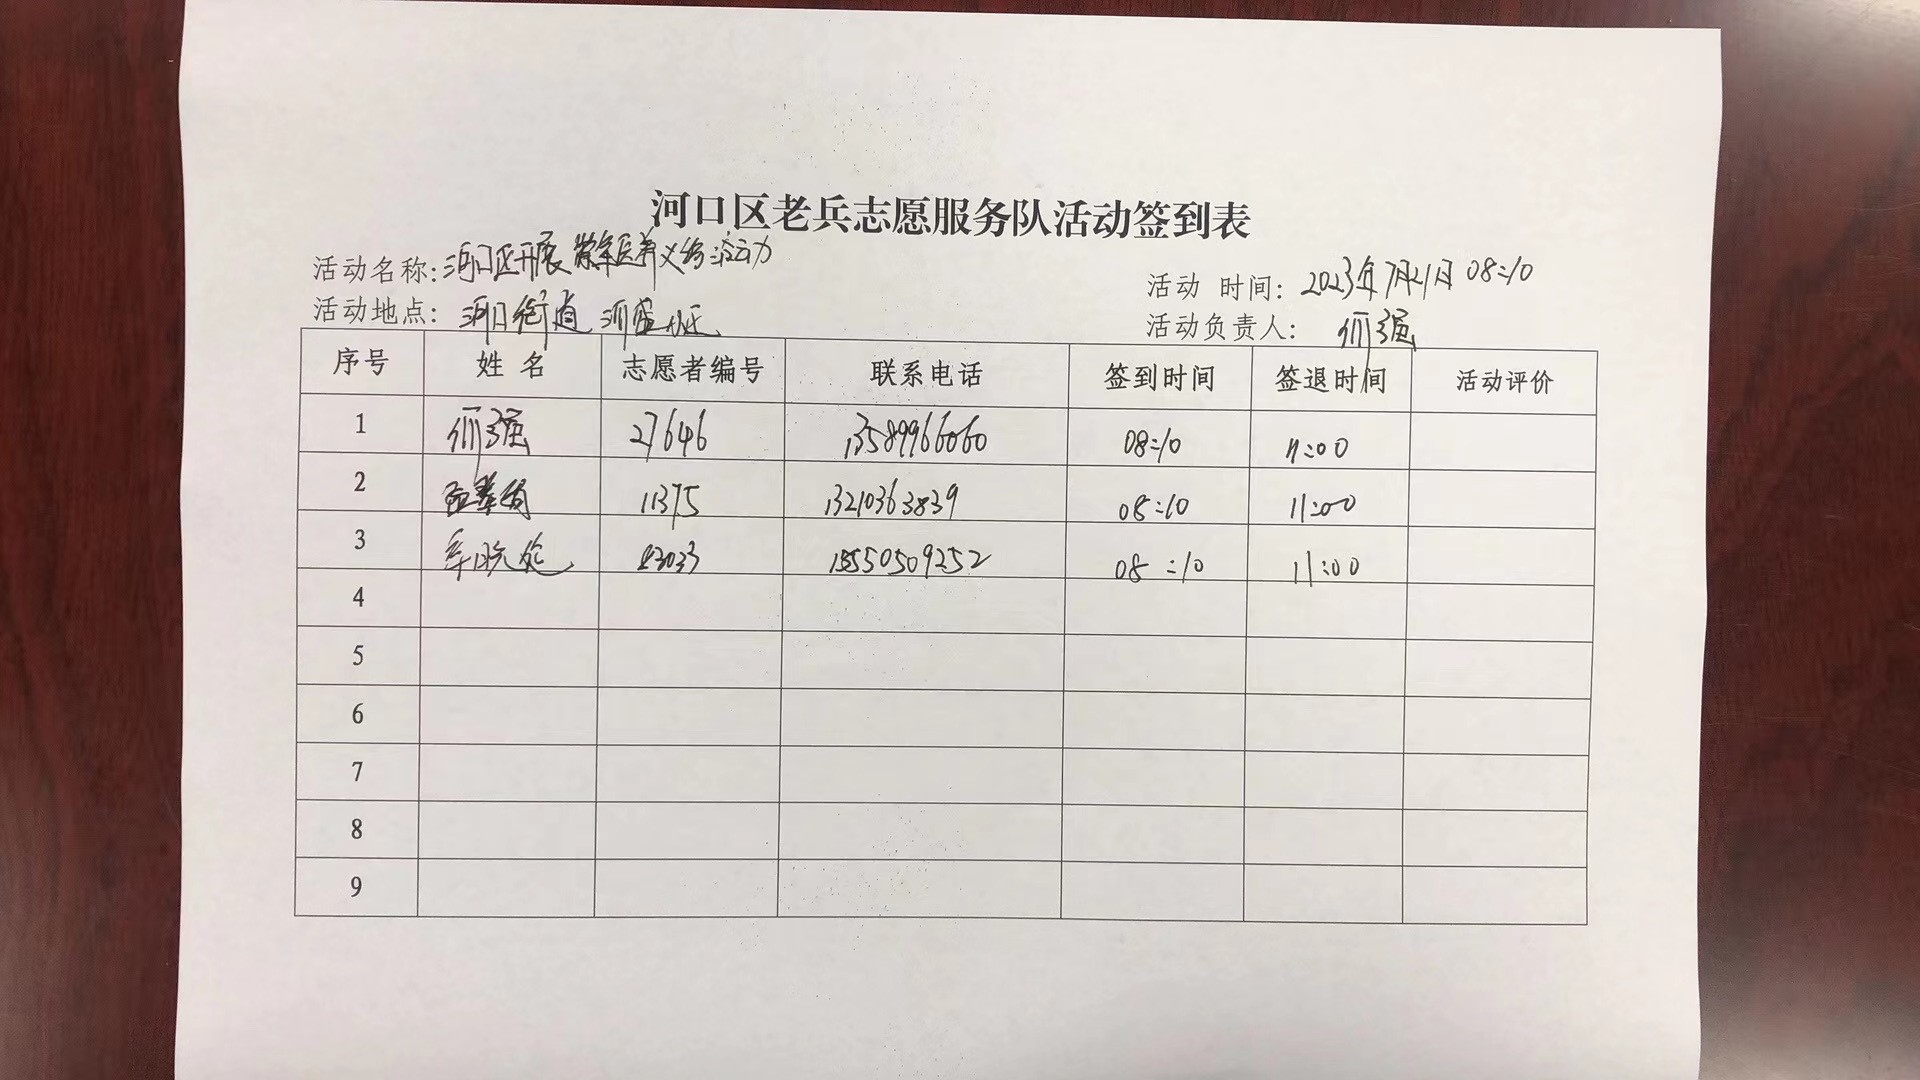 河口区老兵志愿服务队活动签到表
活动名称：河口区开展 义 活动
活动 时间：2023年7月21日 08:10
活动地点：河口街道 河盛社区
活动负责人： 强
序号 姓 名 志愿者编号 联系电话 签到时间 签退时间 活动评价
1 强 27646 13589966060 08:10 11:00
2 11375 13210363839 08:10 11:00
3 15550509252 08:10 11:00
4
5
6
7
8
9